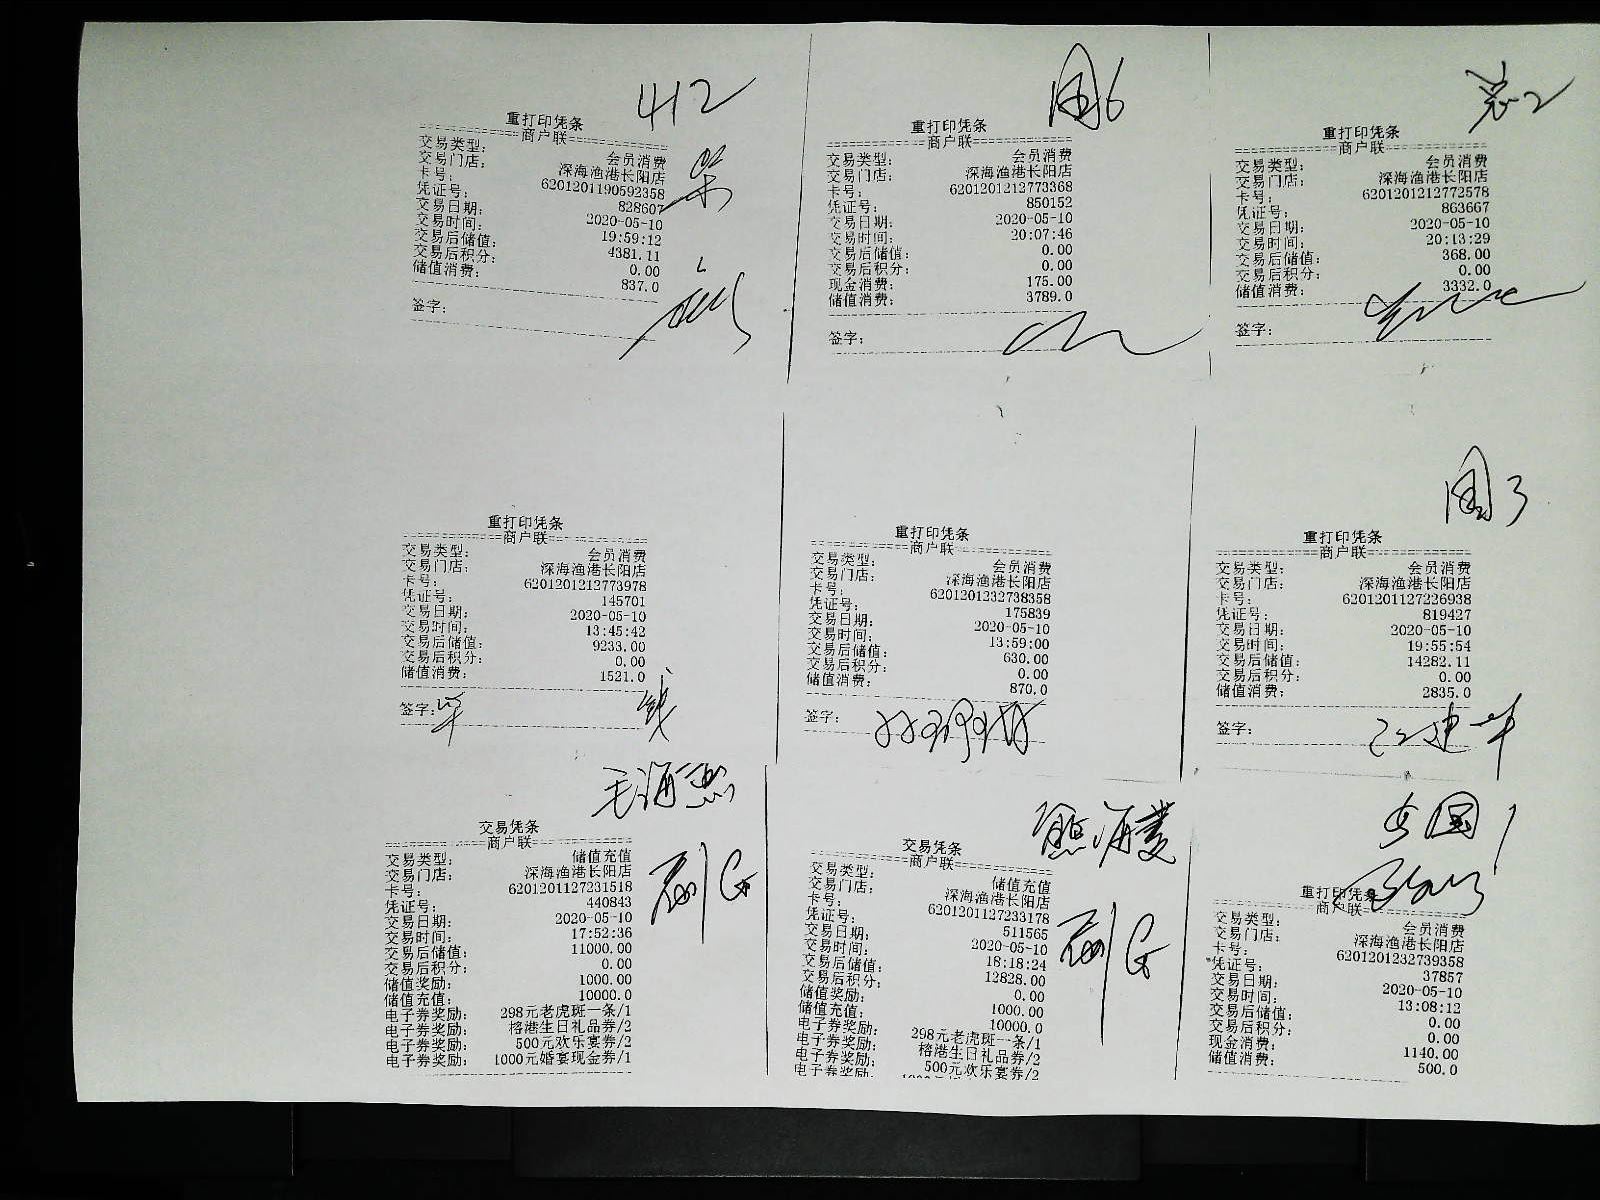 412
重打印凭条
商户联
交易类型: 会员消费
交易门店: 深海渔港长阳店
卡号: 6201201190592358
凭证号: 828607
交易日期: 2020-05-10
交易时间: 19:59:12
交易后储值: 4381.11
交易后积分: 0.00
储值消费: 837.0
签字:
周6
重打印凭条
商户联
交易类型: 会员消费
交易门店: 深海渔港长阳店
卡号: 6201201212773368
凭证号: 850152
交易日期: 2020-05-10
交易时间: 20:07:46
交易后储值: 0.00
交易后积分: 0.00
现金消费: 175.00
储值消费: 3789.0
签字:
重打印凭条
商户联
交易类型: 会员消费
交易门店: 深海渔港长阳店
卡号: 6201201212772578
凭证号: 863667
交易日期: 2020-05-10
交易时间: 20:13:29
交易后储值: 368.00
交易后积分: 0.00
储值消费: 3332.0
签字:
重打印凭条
商户联
交易类型: 会员消费
交易门店: 深海渔港长阳店
卡号: 6201201212773978
凭证号: 145701
交易日期: 2020-05-10
交易时间: 13:45:42
交易后储值: 9233.00
交易后积分: 0.00
储值消费: 1521.0
签字:
重打印凭条
商户联
交易类型: 会员消费
交易门店: 深海渔港长阳店
卡号: 6201201232738358
凭证号: 175839
交易日期: 2020-05-10
交易时间: 13:59:00
交易后储值: 630.00
交易后积分: 0.00
储值消费: 870.0
签字:
周3
重打印凭条
商户联
交易类型: 会员消费
交易门店: 深海渔港长阳店
卡号: 6201201127226938
凭证号: 819427
交易日期: 2020-05-10
交易时间: 19:55:54
交易后储值: 14282.11
交易后积分: 0.00
储值消费: 2835.0
签字:
毛海燕
交易凭条
商户联
交易类型: 储值充值
交易门店: 深海渔港长阳店
卡号: 6201201127231518
凭证号: 440843
交易日期: 2020-05-10
交易时间: 17:52:36
交易后储值: 11000.00
交易后积分: 0.00
储值奖励: 1000.00
储值充值: 10000.0
电子券奖励: 298元老虎斑一条/1
电子券奖励: 榕港生日礼品券/2
电子券奖励: 500元欢乐宴券/2
电子券奖励: 1000元婚宴现金券/1
交易凭条
商户联
交易类型: 储值充值
交易门店: 深海渔港长阳店
卡号: 6201201127233178
凭证号: 511565
交易日期: 2020-05-10
交易时间: 18:18:24
交易后储值: 12828.00
交易后积分: 0.00
储值奖励: 1000.00
储值充值: 10000.0
电子券奖励: 298元老虎斑一条/1
电子券奖励: 榕港生日礼品券/2
电子券奖励: 500元欢乐宴券/2
重打印凭条
商户联
交易类型: 会员消费
交易门店: 深海渔港长阳店
卡号: 6201201232739358
凭证号: 37857
交易日期: 2020-05-10
交易时间: 13:08:12
交易后储值: 0.00
交易后积分: 0.00
现金消费: 1140.00
储值消费: 500.0